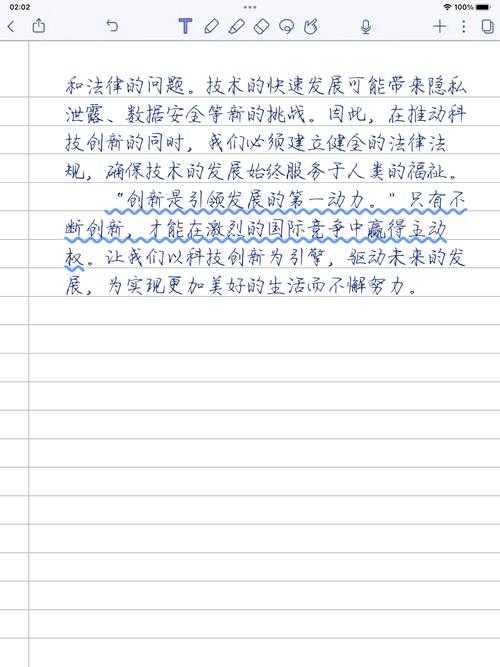 02:02
100%
和法律的问题。技术的快速发展可能带来隐私
泄露、数据安全等新的挑战。因此，在推动科
技创新的同时，我们必须建立健全的法律法
规，确保技术的发展始终服务于人类的福祉。
“创新是引领发展的第一动力。”只有不
断创新，才能在激烈的国际竞争中赢得主动
权。让我们以科技创新为引擎，驱动未来的发
展，为实现更加美好的生活而不懈努力。